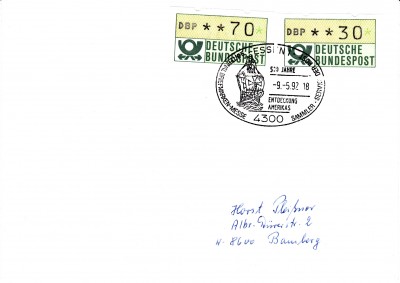 DBP **70* DBP **30*
DEUTSCHE BUNDESPOST DEUTSCHE BUNDESPOST
500 JAHRE
-9.-5.92 18
ENTDECKUNG
AMERIKAS
BRIEFMARKEN-MESSE 4300 SAMMLER-SERVICE
Horst
W-8600 Bamberg